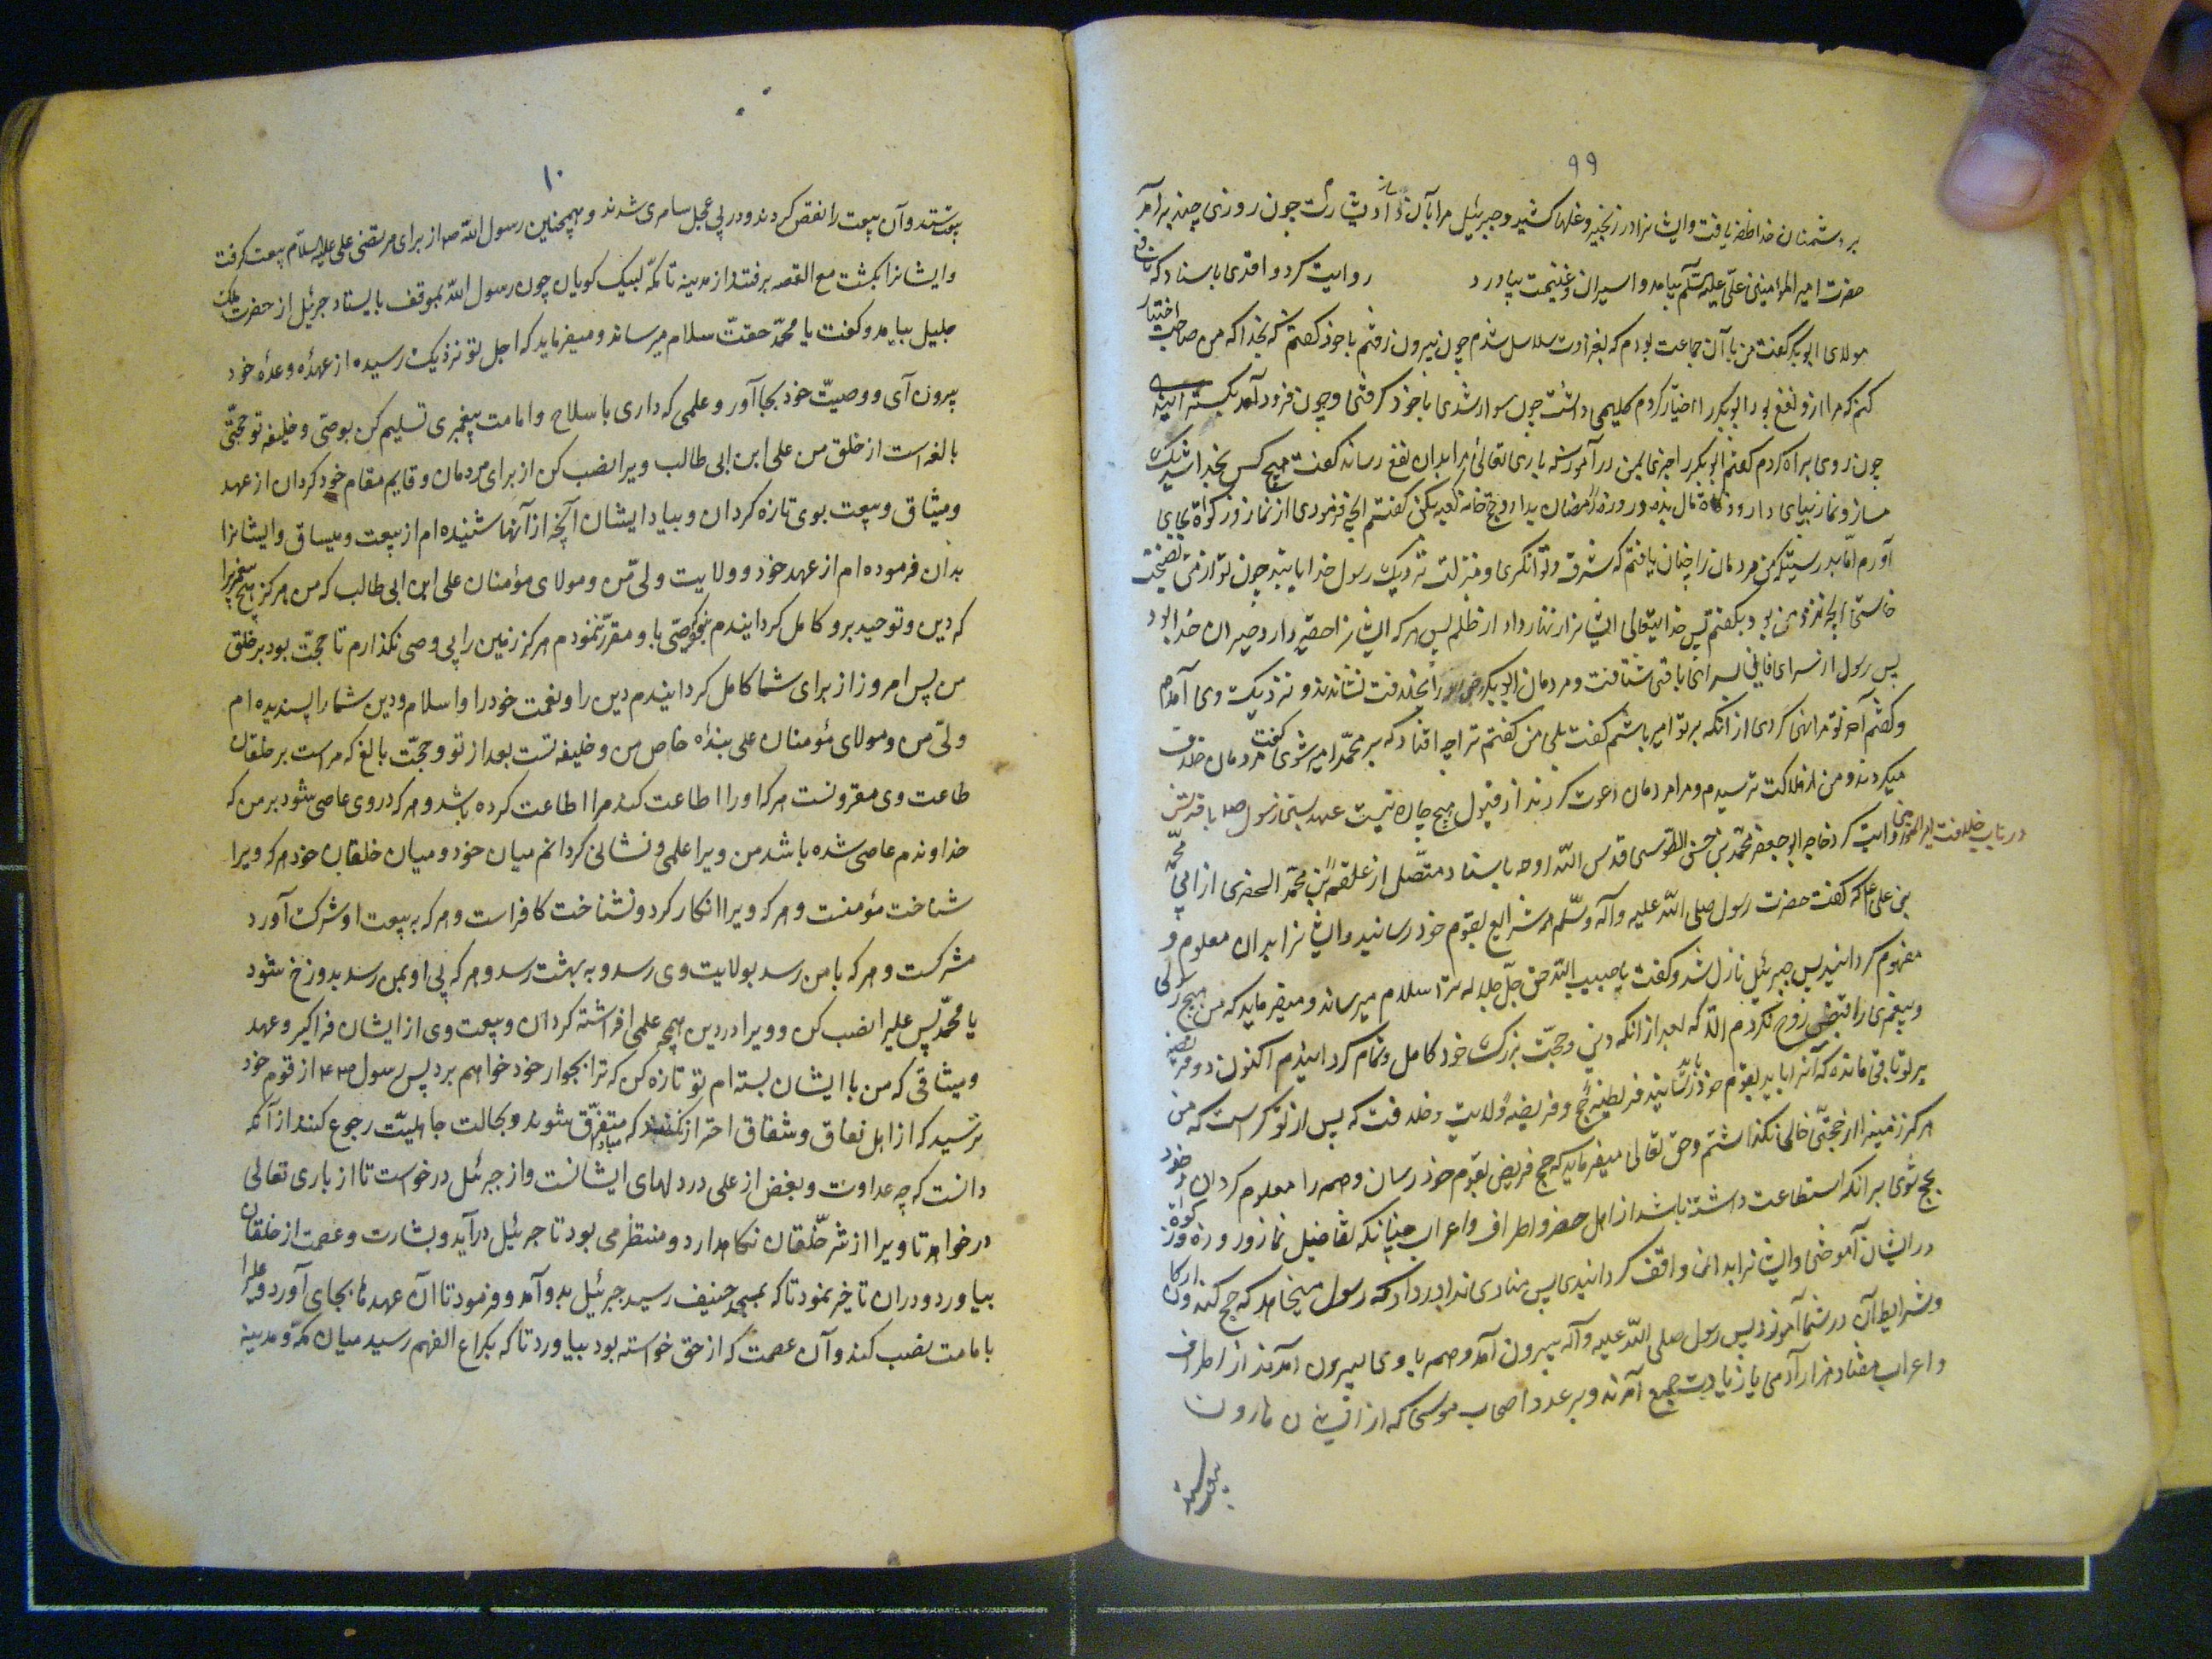 ۹۹
بر دشمنان خدا ظفر یافت وایشانرا در زنجیر و غلها کشید و جبرئیل مرا بآن بشارت چون روزی چند برآمد
حضرت امیرالمؤمنین علی علیه السّلم بیامد و اسیران و غنیمت بیاورد روایت کرد واقدی باسناد که
مولای ابوبکر گفت من با آن جماعت بودم که بغزاوت سلاسل شدم چون بیرون رفتم با خود کفتم که بخدا که من صاحب اختیار
کنم که مرا ازو نفع بود ابوبکر را اختیار کردم کلیمی داشت چون سوار شدی با خود کرفتی و چون فرود آمد
چون روی براه کردم کفتم ابوبکر را چیزی بمن درآموز که باری تعالی مرا بدان نفع رساند کفت هیچ کس بخدا شریک
مساز و نماز بپای دار و زکاة مال بده و روزه رمضان بدار و حج خانه کعبه بکن کفتم انچه فرمودی از نماز و زکوة بجای
آورم اما بدرستیکه من مردمان را چنان یافتم که شرف و توانکری و منزلت نزدیک رسول خدا یابند چون تو از من نصیحت
خاستی آنچه نزد من بود بکفتم پس خدایتعالی ایشانرا زنهار داد از ظلم پس هر که ایشانرا حقیر دارد خدا بود
پس رسول از سرای فانی بسرای باقی شتافت و مردمان ابوبکر را بخلافت نشاندند و نزدیک وی آمدم
و کفتم آخر تو مرا نهی کردی از انکه بر دو امیر باشم کفت بلی من کفتم ترا چه افتاد که بر محمد امیر شوی کفت مردمان خلاف
میکردند و من از هلاکت ترسیدم و مرا مردمان دعوت کردند از قبول هیچ چاره نیست
در باب خلافت امیرالمؤمنین روایت کرد خاجه ابوجعفر محمد بن حسن الطوسی قدس اللّه روحه باسناد متصل از علقمه بن محمّد الحضرمی از ابی محمّد
بن علی ع که کفت حضرت رسول صلی اللّه علیه وآله وسلّم همه شرایع بقوم خود رسانید و ایشانرا بدان معلوم و
مفهوم کردانید پس جبرئیل نازل شد و کفت یا حبیب اللّه حق جلّ جلاله ترا سلام میرساند و میفرماید که من هیچ رسولی
و پیغمبری را قبض روح نکردم الّا که بعد از انکه دین و حجّت بزرک خود کامل و تمام کردانیدم اکنون دو فریضه
بر تو باقی مانده که آنرا باید بقوم خود رسانید فریضهٔ حج و فریضهٔ ولایت و خلافت که پس از تو کراست که من
هرکز زمینرا از حجتی خالی نکذاشتم و حق تعالی میفرماید که حج فریض بقوم خود رسان و همه را معلوم کردان و خود
بحج شوی هر انکه استطاعت داشته باشد از اهل حضر و اطراف و اعراب چنانکه تفاصیل نماز و روزه و زکوة
در ایشان آموختی و ایشانرا بدان واقف کردانیدی پس منادی ندا در داد که رسول میخاهد که حج کند و ارکان
و شرایط آن در شما آموزد پس رسول صلی اللّه علیه وآله بیرون آمد و همه با وی بیرون آمدند از اطراف
و اعراب هفتاد هزار آدمی یا زیادت جمع آمدند و بر عدد اصحاب موسی که از ایشان هارون
بیعت ستد
۱۰
بیعت ستد و آن بیعت را نقض کردند و در پی عجل سامری شدند و همچنین رسول اللّه ص از برای مرتضی علی علیه السلام بیعت کرفت
و ایشانرا بکشت مع القصه برفتند از مدینه تا مکّه لبیک کویان چون رسول اللّه بموقف بایستاد جبرئیل از حضرت ملک
جلیل بیامد و کفت یا محمّد حقت سلام میرساند و میفرماید که اجل تو نزدیک رسیده از عهدهٔ وعدهٔ خود
بیرون آی و وصیّت خود بجا آور و علمی که داری با سلاح و امامت پیغمبری تسلیم کن بوصی و خلیفه تو حجّتی
بالغه است از خلق من علی ابن ابی طالب ویرا نصب کن از برای مردمان و قایم مقام خود کردان از عهد
و میثاق و بیعت بوی تازه کردان و بیاد ایشان آنچه از آنها شنیده ام از بیعت و میساق و ایشانرا
بدان فرموده ام از عهد خود و ولایت ولیّ من و مولای مؤمنان علی ابن ابی طالب که من هرکز هیچ پیغمبر را
که دین و توحید برو کامل کردانیدم با و مقرر نمودم هرکز زمین را بی وصی نکذارم تا حجّت بود بر خلق
من پس امروز از برای شما کامل کردانیدم دین را و نعمت خود را و اسلام و دین شما را پسندیده ام
ولیّ من و مولای مؤمنان علی بندهٔ خاص من و خلیفه تست بعد از تو و حجّت بالغ که مراست بر خلقان
طاعت وی مقرونست هر که اورا اطاعت کند مرا اطاعت کرده باشد و هر که در وی عاصی شود بر من که
خداوندم عاصی شده باشد من ویرا علمی و نشانی کردانم میان خود و میان خلقان خود هر که ویرا
شناخت مؤمنست و هر که ویرا انکار کرد و نشناخت کافراست و هر که به بیعت او شرک آورد
مشرکست و هر که با من رسد بولایت وی رسد و به بهشت رسد و هر که بی او بمن رسد بدوزخ شود
یا محمّد پس علیرا نصب کن و ویرا در دین همچو علمی افراشته کردان و بیعت وی از ایشان فراکیر و عهد
و میثاقی که من با ایشان بسته ام تو تازه کن که ترا بجوار خود خواهم برد پس رسول ص از قوم خود
ترسید که از اهل نفاق و شقاق احتراز کنند که مبادا متفرّق شوند و بحالت جاهلیّت رجوع کنند از آنکه
دانست که چه عداوت و بغض از علی در دلهای ایشانست و از جبرئیل درخواست تا از باری تعالی
درخواهد تا ویرا از شر خلقان نکاهدارد و منتظر می بود تا جبرئیل درآید و بشارت و عصمت از خلقان
بیاورد و دران تاخیر نمود تا که بمسجد حنیف رسید جبرئیل بدو آمد و فرمود تا آن عهد بجای آورد و علیرا
بامامت نصب کند و آن عصمت که از حق خواسته بود بیاورد تا که بکراع الفهم رسید میان مکّه و مدینه